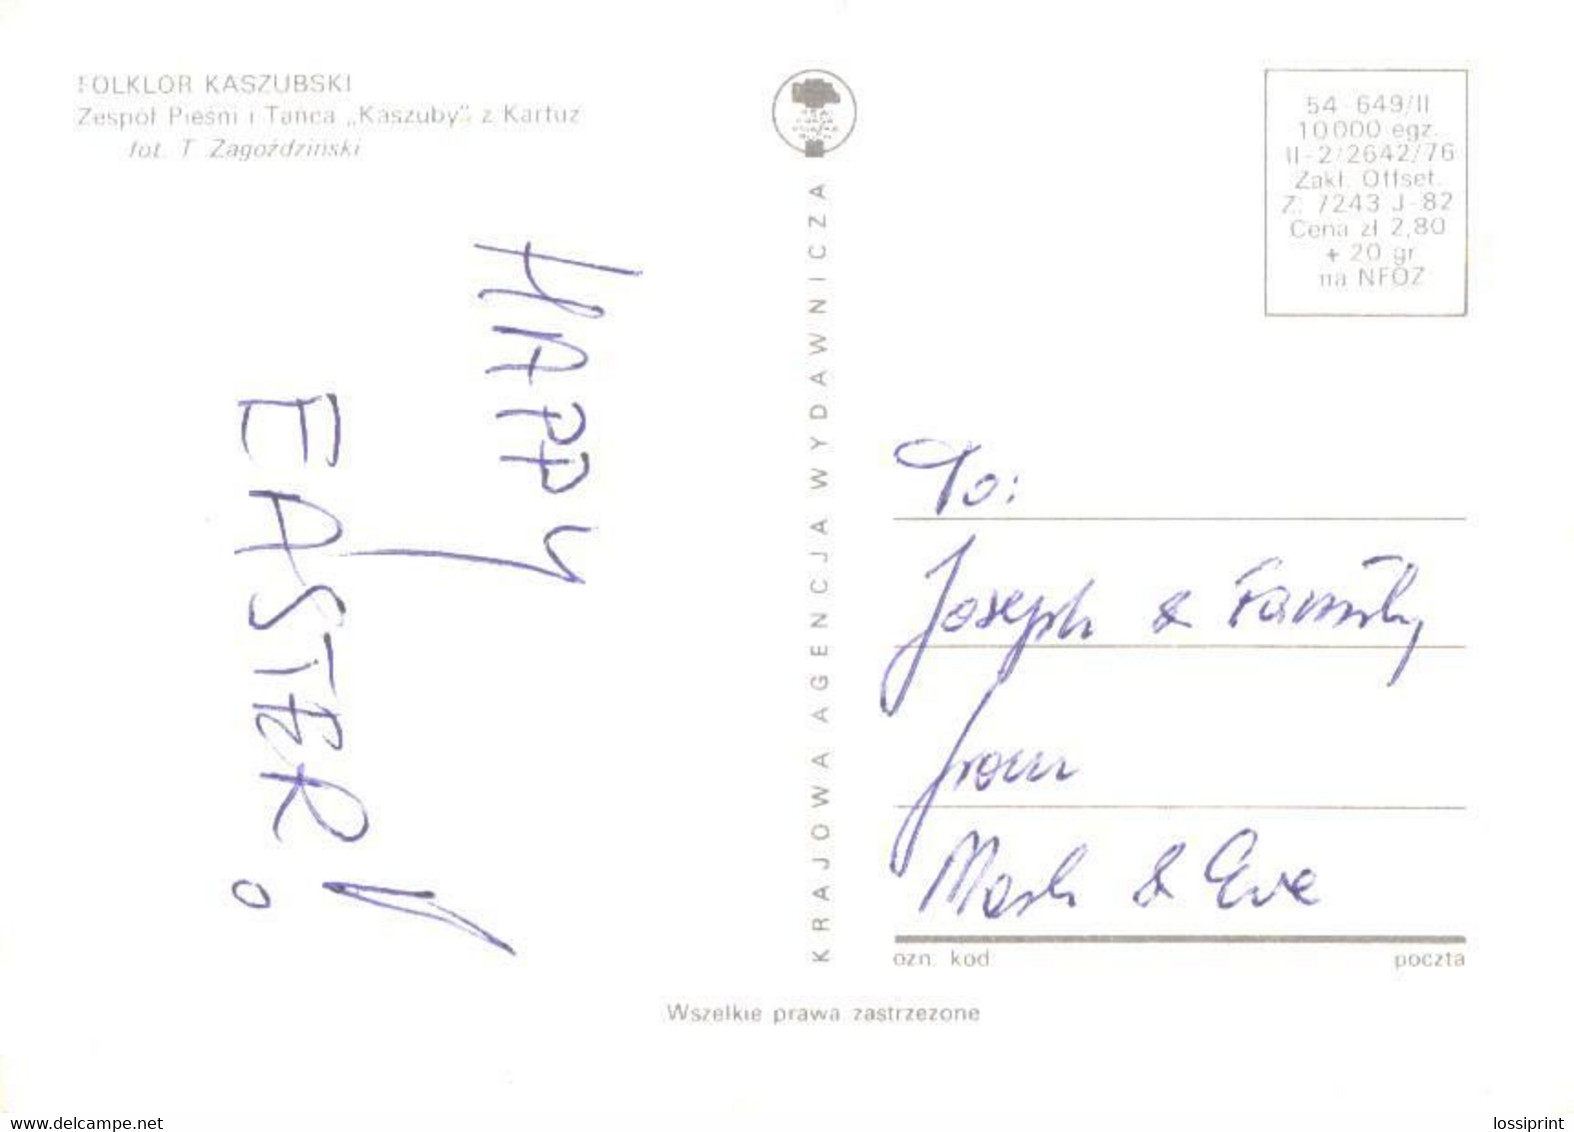 FOLKLOR KASZUBSKI
Zespół Pieśni i Tańca „Kaszuby” z Kartuz
fot. T. Zagoździński
HAPPY
EASTER!
KRAJOWA AGENCJA WYDAWNICZA
54-649/II
10000 egz.
II-2/2642/76
Zakł. Offset.
Z. 7243 J-82
Cena zł 2,80
+ 20 gr
na NFOZ
To:
Joseph & Family
from
& Eve
ozn. kod
poczta
Wszelkie prawa zastrzeżone
Delcampe.net
lossiprint